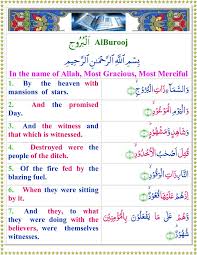 اَلْبُرُوْج AlBurooj
بِسْمِ اللّٰهِ الرَّحْمٰنِ الرَّحِيْمِ
In the name of Allah, Most Gracious, Most Merciful
1. By the heaven with
mansions of stars.
وَالسَّمَآءِ ذَاتِ الْبُرُوْجِ
2. And the promised
Day.
وَالْيَوْمِ الْمَوْعُوْدِ
3. And the witness and
that which is witnessed.
وَشَاهِدٍ وَّمَشْهُوْدٍ
4. Destroyed were the
people of the ditch.
قُتِلَ اَصْحٰبُ الْاُخْدُوْدِ
5. Of the fire fed by the
blazing fuel.
النَّارِ ذَاتِ الْوَقُوْدِ
6. When they were sitting
by it.
اِذْ هُمْ عَلَيْهَا قُعُوْدٌ
7. And they, to what
they were doing with the
believers, were themselves
witnesses.
وَّهُمْ عَلٰى مَا يَفْعَلُوْنَ بِالْمُؤْمِنِيْنَ
شُهُوْدٌ